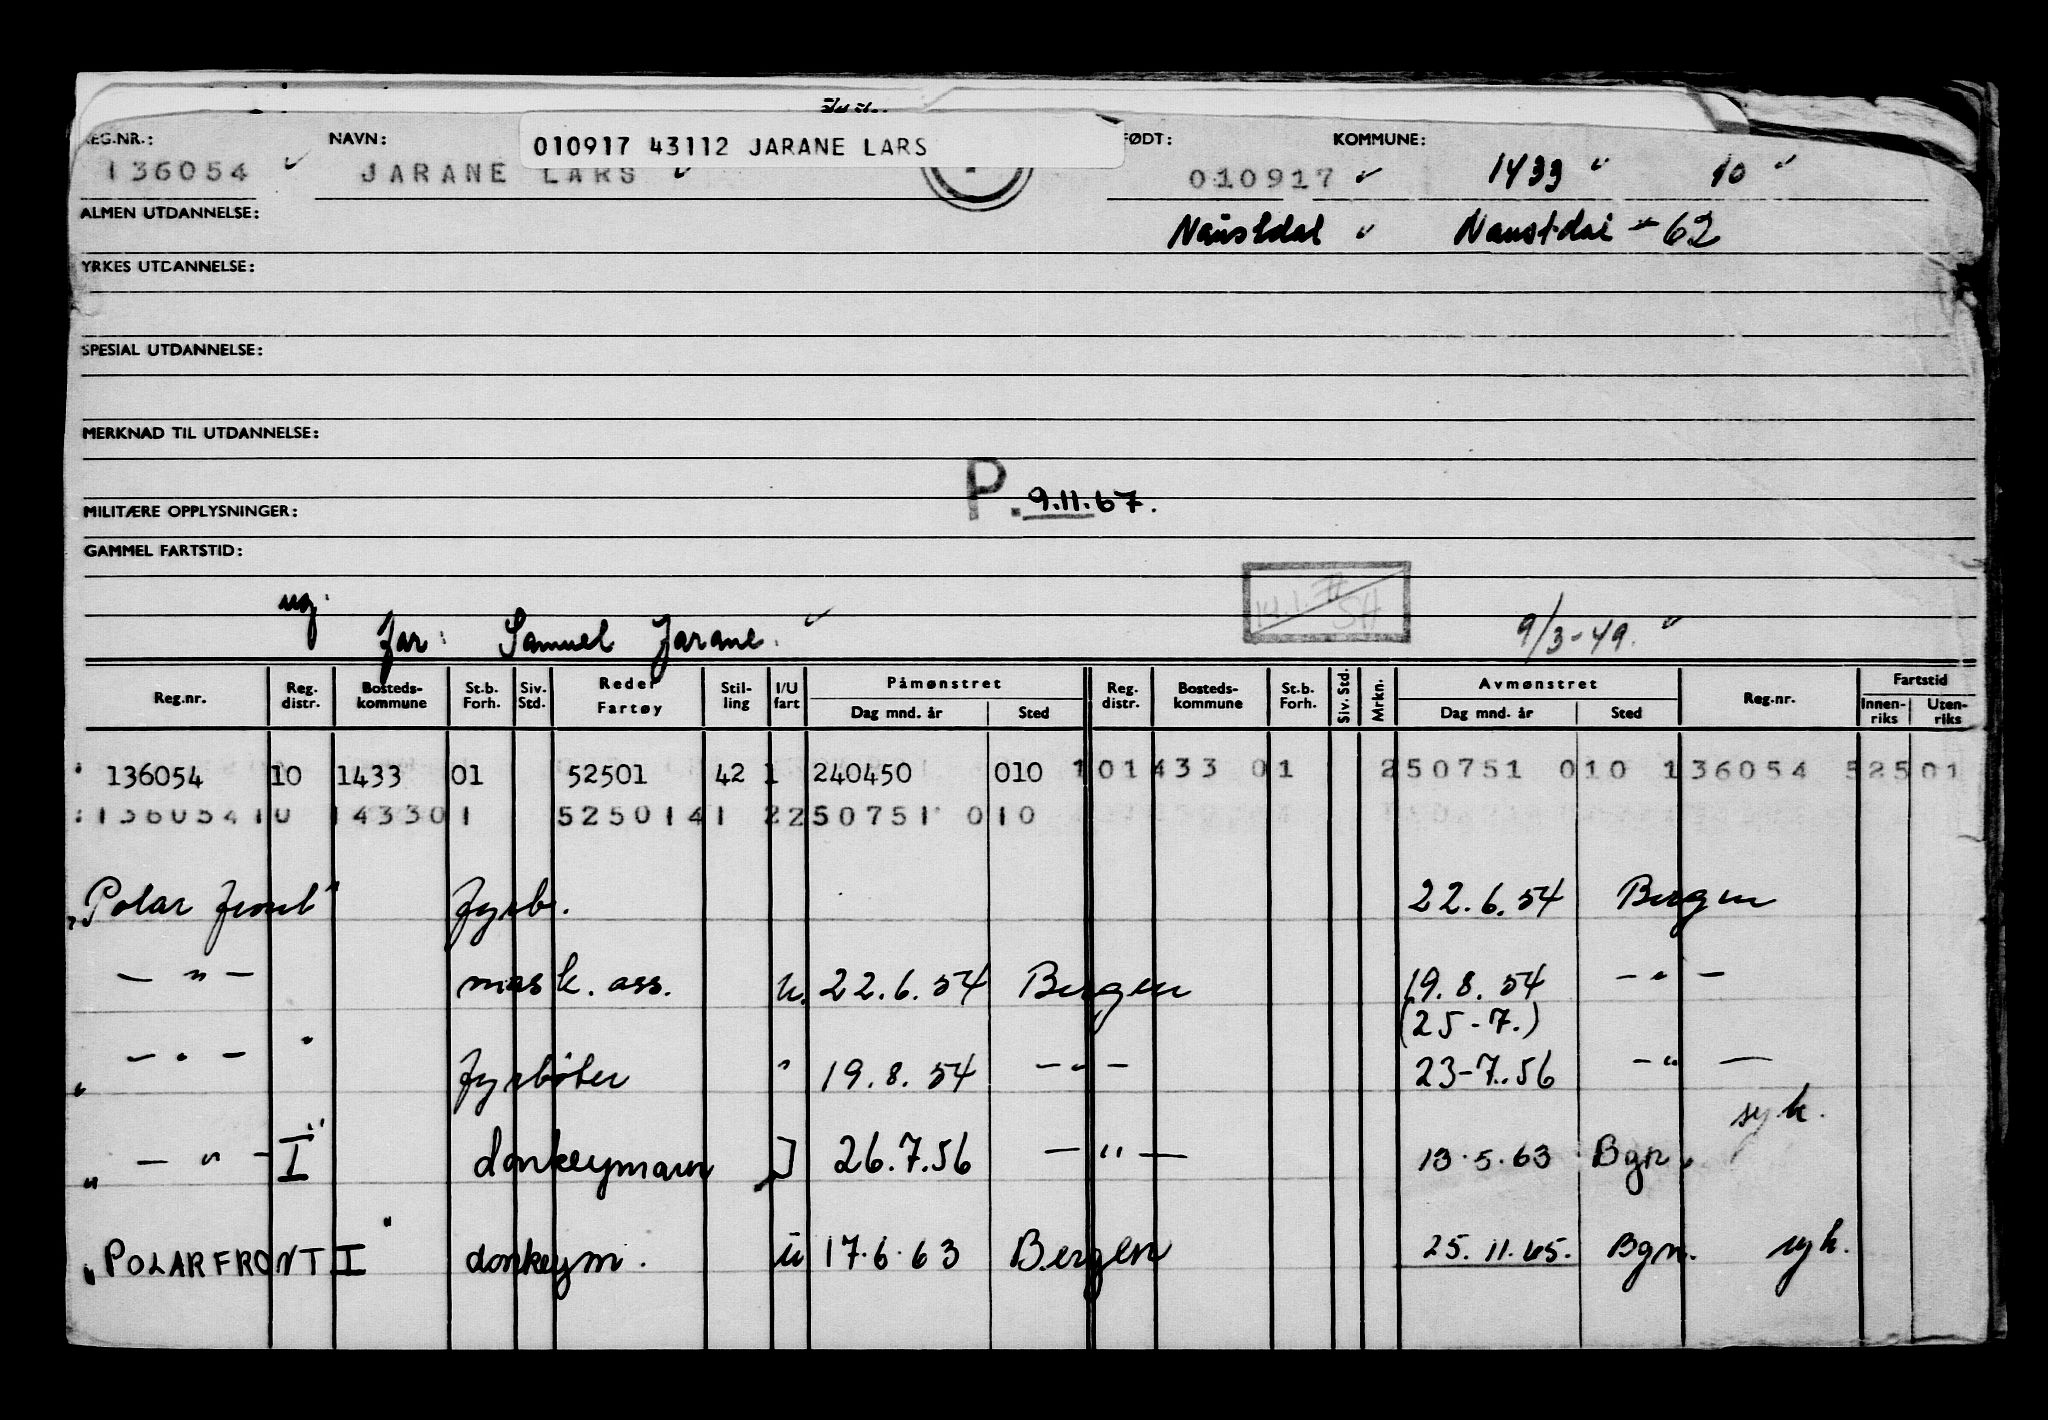 010917 43112 JARANE LARS
REG.NR.: NAVN: FØDT: KOMMUNE:
136054 JARANE LARS 010917 1433 10
ALMEN UTDANNELSE: Naustdal Naustdal - 62
YRKES UTDANNELSE:
SPESIAL UTDANNELSE:
MERKNAD TIL UTDANNELSE:
P. 9.11.67.
MILITÆRE OPPLYSNINGER:
GAMMEL FARTSTID:
ug.
far: Samuel Jarane. 9/3-49.
Reg.nr. Reg. distr. Bosteds- kommune St.b. Forh. Siv. Std. Reder Fartøy Stil- ling I/U fart Påmønstret Dag mnd. år Sted Reg. distr. Bosteds- kommune St.b. Forh. Siv. Std. Mrkn. Avmønstret Dag mnd. år Sted Reg.nr. Fartstid Innen- riks Uten- riks
136054 10 1433 01 52501 42 1 240450 010 101433 01 250751 010 136054 52501
13605410 143301 5250141 2250751 010
"Polar front" fyrb. 22.6.54 Bergen
— " — mask. ass. u. 22.6.54 Bergen 19.8.54 — " —
(25-7.)
" — " — " fyrbøter " 19.8.54 — " — 23-7.56 — " —
syk.
" — " — I" donkeymann 26.7.56 — " — 13.5.63 Bgn.
"POLARFRONT I" donkeym. u 17.6.63 Bergen 25.11.65. Bgn. syk.